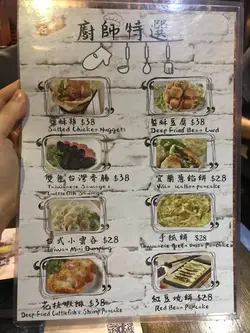 廚師特選
鹽酥雞 $38
Salted Chicken Nuggets
鹽酥豆腐 $38
Deep Fried Bean Curd
雙色台灣香腸 $38
Taiwanese Sausage &
Cuttlefish Sausage
宜蘭蔥餡餅 $28
台式小雲吞 $28
Taiwan Mini Dumpling
手抓餅 $28
花枝蝦排 $38
Deep-Fried Cuttlefish & Shrimp Pancake
紅豆燒餅 $28
Red Bean Pancake